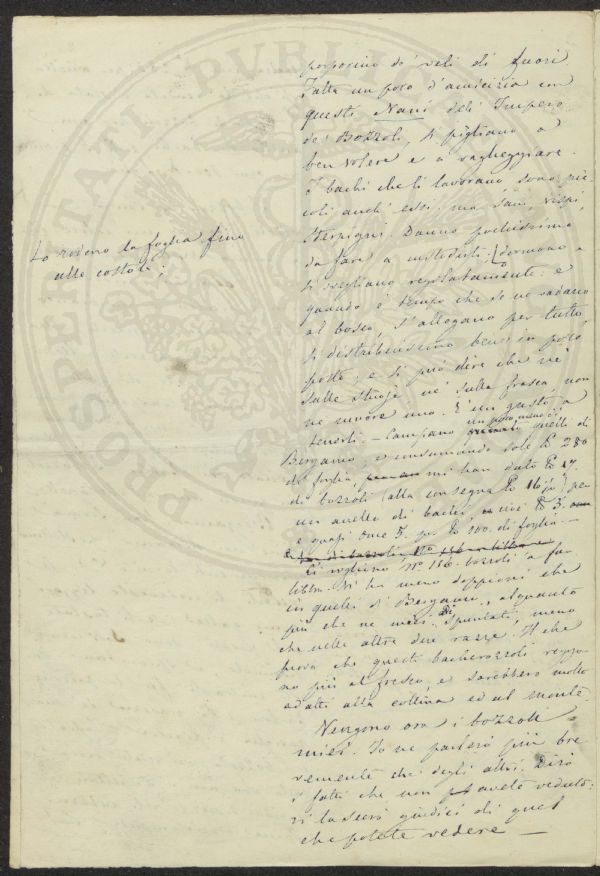 porporino de' veli di fuori.
Fatta un poco d'amicizia con
questi Nani dell' Impero
de' Bozzoli, si pigliano a
ben volere e a vagheggiare.
I bachi che li lavorano, sono pic-
coli anch' essi, ma sani, vispi,
Danno pochissimo
da fare a custodirli: dormono e
si svegliano regolatamente: e
quando è tempo che se ne vadano
al bosco, s'allogano per tutto,
si distribuiscono bene in poco
posto; e si può dire che nè
sulle stuoje nè sulla frasca, non
ne muore uno. È un gusto a
tenerli. — Campano un poco meno di quelli di
Bergamo, e consumando sole lb 280
di foglia, mi han dato lb 17
di bozzoli (alla consegna lb 16 ) per
un anello di bachi, cioè lb 5.
e quasi once 5. per lb 100. di foglia. —
Ci vogliono N° 156 bozzoli a far
libbra. Vi ha meno doppioni che
in quelli di Bergamo, alquanto
più che ne' miei. Di spuntati, meno
che nelle altre due razze. Il che
prova che questi bacherozzoli reggo-
no più al fresco, e sarebbero molto
adatti alla collina ed al monte.
Vengono ora i bozzoli
miei. Io ne parlerò più bre-
vemente che degli altri. Dirò
i fatti che non avete veduto:
vi lascerò giudici di quel
che potete vedere —
Lo rodono la foglia fino
alle costole;